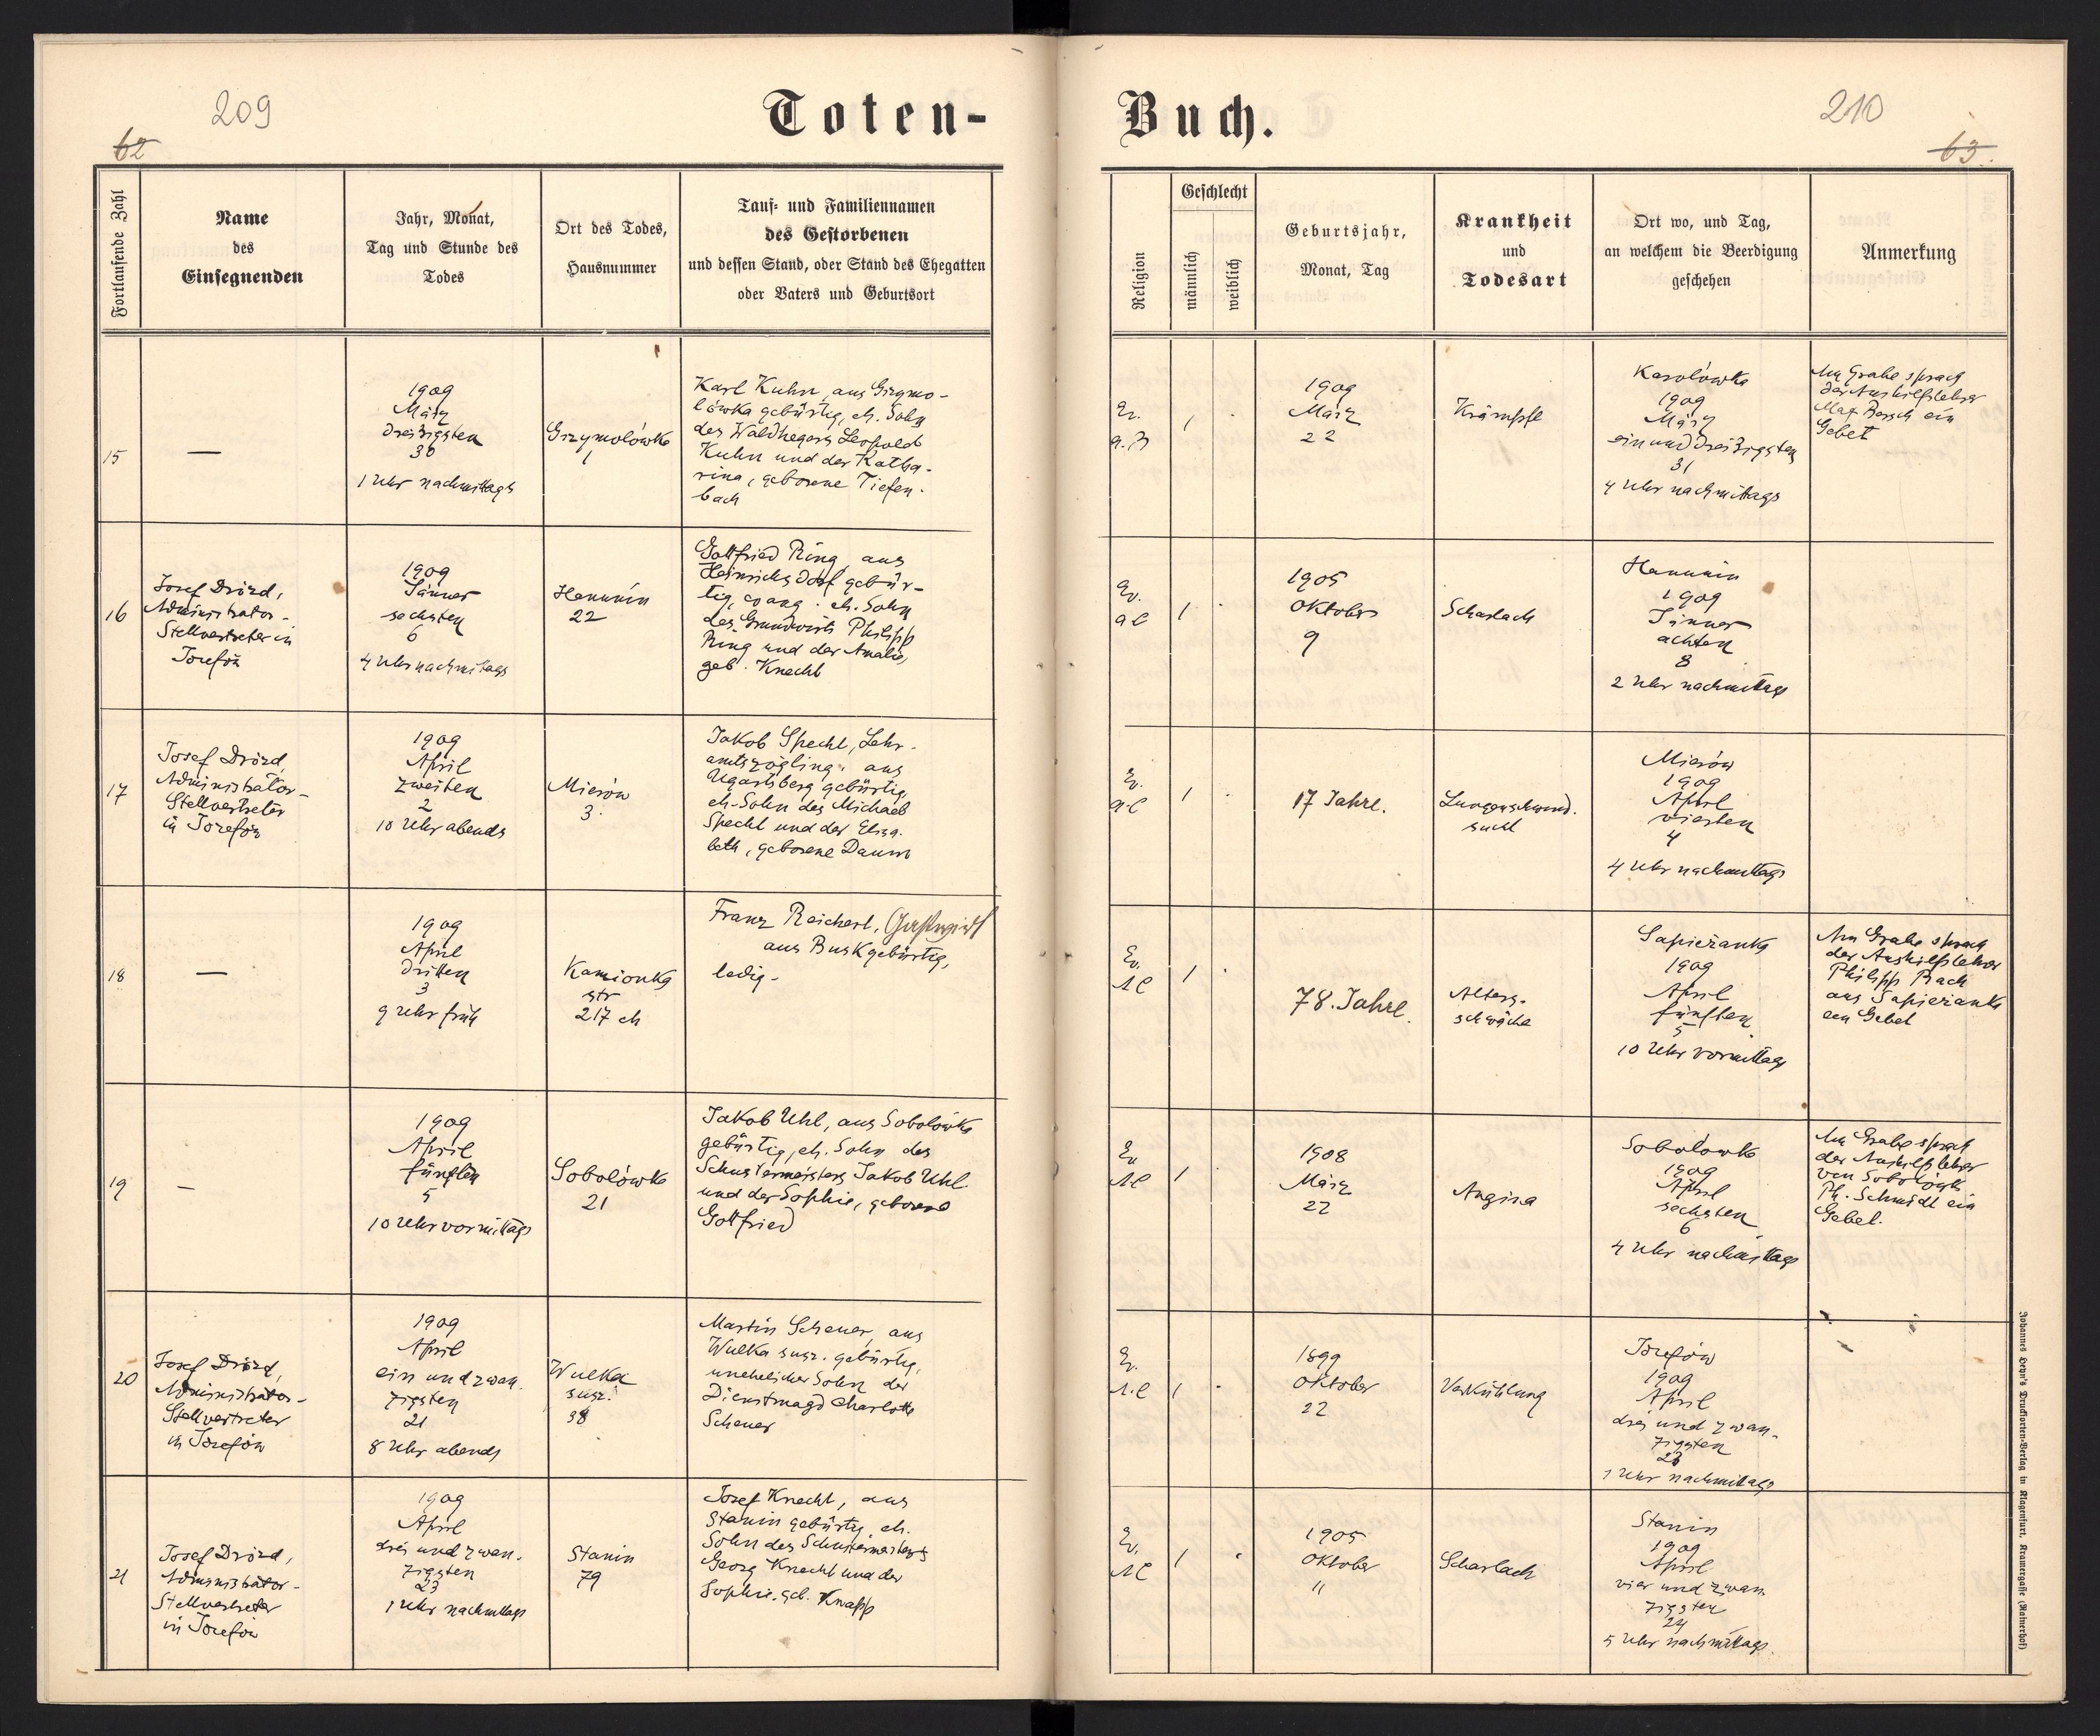 209
62
Toten-
Fortlaufende Zahl
Name
des
Einsegnenden
Jahr, Monat,
Tag und Stunde des
Todes
Ort des Todes,
Hausnummer
Tauf- und Familiennamen
des Gestorbenen
und dessen Stand, oder Stand des Ehegatten
oder Vaters und Geburtsort
15
—
1909
März
dreißigsten
30
1 Uhr nachmittags
Grzymolówka
1
Karl Kuhn, aus Grzymo-
lówka gebürtig, eh. Sohn
des Waldhegers Leopold
Kuhn und der Katha-
rina, geborene Tiefen-
bach
16
Josef Drózd,
Administrator-
Stellvertreter in
Józefów
1909
Jänner
sechsten
6
4 Uhr nachmittags
Hanunin
22
Gottfried Ring, aus
Heinrichsdorf gebür-
tig, evang. eh. Sohn
des Grundwirts Philipp
Ring und der Amalie,
geb. Knecht
17
Josef Drózd,
Administrator-
Stellvertreter
in Józefów
1909
April
zweiten
2
10 Uhr abends
Mierów
3.
Jakob Specht, Lehr-
amtszögling, aus
Ugartsberg gebürtig
eh. Sohn des Michael
Specht und der Elisa-
beth, geborene Daum
18
—
1909
April
dritten
3
9 Uhr früh
Kamionka
str
217 ch
Franz Reichert, Gastwirt
aus Busk gebürtig,
ledig.
19
—
1909
April
fünften
5
10 Uhr vormittags
Sobolówka
21
Jakob Uhl, aus Sobolówka
gebürtig, eh. Sohn des
Schustermeisters Jakob Uhl
und der Sophie, geborene
Gottfried
20
Josef Drózd,
Administrator-
Stellvertreter
in Józefów
1909
April
ein und zwan-
zigsten
21
8 Uhr abends
Wulka
susz.
38
Martin Scheuer, aus
Wulka susz. gebürtig,
unehelicher Sohn der
Dienstmagd Charlotte
Scheuer
21
Josef Drózd,
Administrator-
Stellvertreter
in Józefów
1909
April
drei und zwan-
zigsten
23
1 Uhr nachmittags
Stanin
79
Josef Knecht, aus
Stanin gebürtig, eh.
Sohn des Schustermeisters
Georg Knecht und der
Sophie, geb. Knapp
210
63.
Buch.
Religion
Geschlecht
männlich
weiblich
Geburtsjahr,
Monat, Tag
Krankheit
und
Todesart
Ort wo, und Tag,
an welchem die Beerdigung
geschehen
Anmerkung
Ev.
a. B
1
.
1909
März
22
Krämpfe
Karolówka
1909
März
ein und dreißigsten
31
4 Uhr nachmittags
Am Grabe sprach
der Aushilfslehrer
Max Bersch ein
Gebet
Ev.
aC
1
.
1905
Oktober
9
Scharlach
Hanunin
1909
Jänner
achten
8
2 Uhr nachmittags
Ev.
aC
1
.
17 Jahre.
Lungenschwind-
sucht
Mierów
1909
April
vierten
4
4 Uhr nachmittags
Ev.
AC
1
.
78. Jahre.
Alters-
schwäche
Sapieżanka
1909
April
fünften
5
10 Uhr vormittags
Am Grabe sprach
der Aushilfslehrer
Philipp Bach
aus Sapieżanka
ein Gebet
Ev
AC
1
.
1908
März
22
Angina
Sobolówka
1909
April
sechsten
6
4 Uhr nachmittags
Am Grabe sprach
der Aushilfslehrer
von Sobolówka
Ph. Schmidt ein
Gebet.
Ev.
A.C
1
.
1899
Oktober
22
Verkühlung
Józefów
1909
April
drei und zwan-
zigsten
23
1 Uhr nachmittags
Ev.
AC
1
.
1905
Oktober
11
Scharlach
Stanin
1909
April
vier und zwan-
zigsten
24
5 Uhr nachmittags.
Johannes Heyn's Drucksorten-Verlag in Klagenfurt, Kramergasse (Rainerhof)